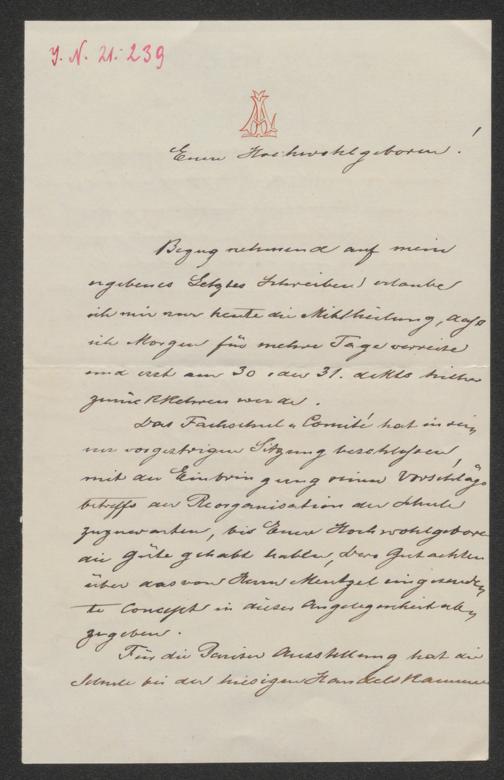 J. N. 21.239
Euer Hochwohlgeboren!
Bezug nehmend auf mein
ergebenes letztes Schreiben, erlaube
ich mir nur heute die Mittheilung, dass
ich Morgen für mehre Tage verreise
und erst am 30 oder 31. hither
zurückkehren werde.
Das Fachschul-Comité hat in sein,
ner vorgestrigen Sitzung beschlossen,
mit der Einbringung seiner Vorschläge
betreffs der Reorganisation der Schule
zuzuwarten, bis Euer Hochwohlgebore
die Güte gehabt haben, Ihre Gutachten
über das von Herrn Mentzel eingesende,
te Concept in dieser Angelegenheit ab,
zugeben.
Für die Pariser Ausstellung hat die
Schule bei der hiesigen Handelskammer